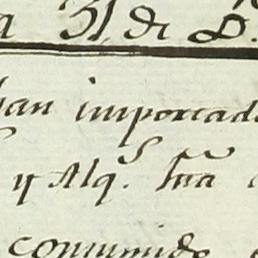 a 31 de D.
han importado
y Alq.s hra
consumido